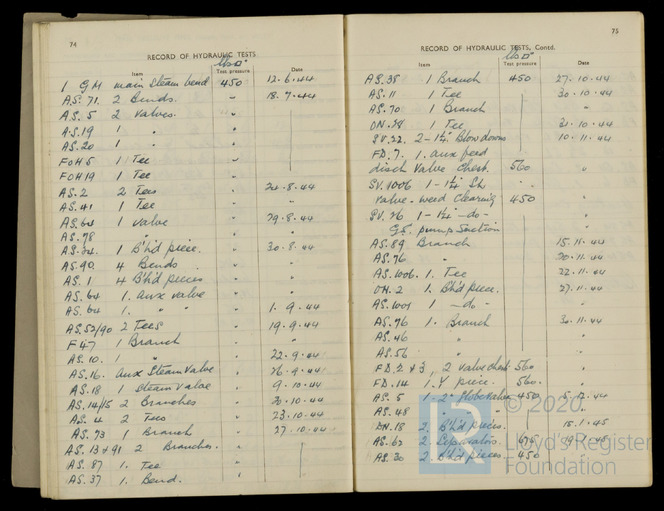 74
RECORD OF HYDRAULIC TESTS
lbs □"
Item Test pressure Date
1 GM main Steam bend 450 12.6.44
AS.71. 2 Bends. " 18.7.44
AS.5 2 Valves. "
A.S.19 1 " "
AS.20 1 " "
FOH5 1 Tee "
FOH19 1 Tee "
AS.2 2 Tees " 24.8.44
AS.41 1 Tee " "
AS.64 1 valve " 29.8.44
AS.78 " "
AS.24. 1 B'h'd piece. " 30.8.44
AS.90 4 Bends " "
AS.1 4 B'h'd pieces " "
AS.64 1. aux valve " "
AS.64 1. " " " 1.9.44
AS.52/90 2 Tees " 19.9.44
F47 1 Branch "
AS.10. 1 " " 22.9.44
AS.16. aux Steam Valve " 26.9.44
AS.18 1 Steam valve " 9.10.44
AS.14/15 2 Branches " 20.10.44
AS.4 2 Tees " 23.10.44
AS.73 1 Branch " 27.10.44
AS.13+91 2 Branches. "
AS.87 1. Tee "
AS.37 1 Bend. "
75
RECORD OF HYDRAULIC TESTS, Contd.
lbs □"
Item Test pressure Date
AS.38 1 Branch 450 27.10.44
AS.11 1 Tee 30.10.44
AS.70 1 Branch "
ON.28 1 Tee 31.10.44
SV.22. 2-1¼" Blow downs 10.11.44
FD.7. 1. aux feed
disch Valve Chest. 560 "
SV.1006 1-1¼" Sh. " "
Valve-weed clearing 450 "
SV.76 1-1¼ -do- "
G.S. pump Suction
AS.89 Branch 15.11.44
AS.76 " 20.11.44
AS.1006. 1. Tee 22.11.44
OH.2 1. B'h'd piece. 27.11.44
AS.1001 1 -do- "
AS.76 1. Branch 30.11.44
AS.46 " "
AS.56 " "
FD.2+3, 2 valve chest 560 "
FD.14 1. Y piece. 560. "
AS.5 1-2" Globe Valve 450 5.12.44
AS.48 " "
ON.18 2. B'h'd pieces. 15.1.45
AS.67 2. Separators. 675
AS.30 2. B'h'd pieces 450
© 2020
LR
Lloyd's Register
Foundation